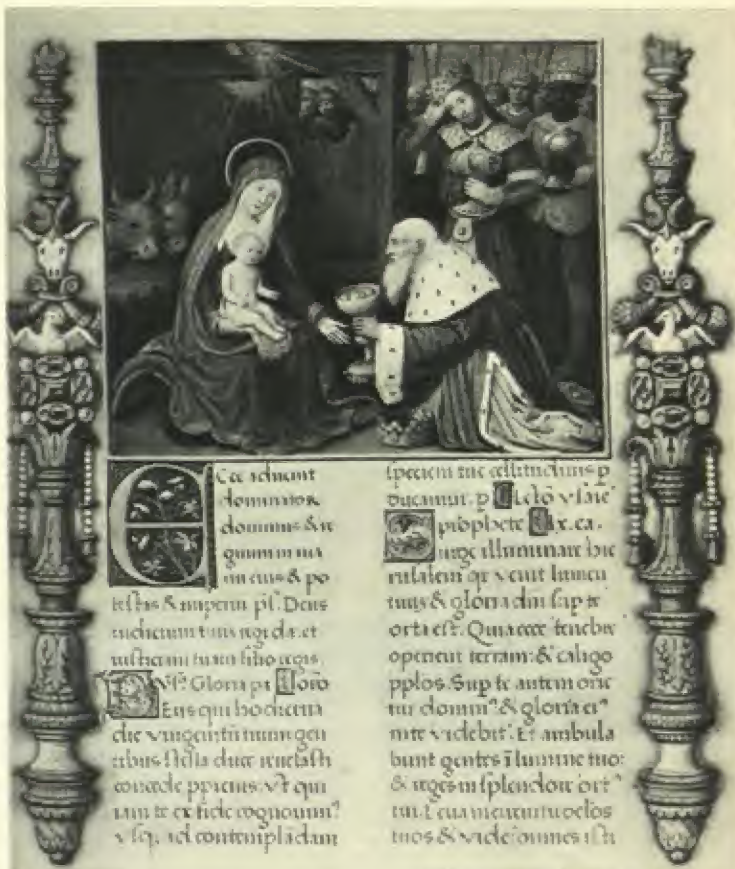 Ecce aduenit
dominator
dominus & re
gnum in ma
nu eius & po
testas & imperiū. ps. Deus
iudicium tuum regi da: et
iusticiam tuam filio regis
V. Gloria pa Oratō
Eus qui hodierna
die vnigenitū tuum gen
tibus stella duce reuelasti
concede ppicius: vt qui
iam te ex fide cognouim⁹
vsq; ad contemplādam
speciem tue celsitudinis p
ducamur. p Lectō ysaie
prophete lx. ca.
urge illuminare hie
rusalem qr venit lumen
tuum & gloria dni sup te
orta est. Quia ecce tenebre
operient terram: & caligo
pplos. Sup te autem orie
tur domin⁹ & gloria ei⁹
in te videbit. Et ambula
bunt gentes ī lumine tuo:
& reges in splendore ort⁹
tui. Leua in circuitu oculos
tuos & vide: omnes isti